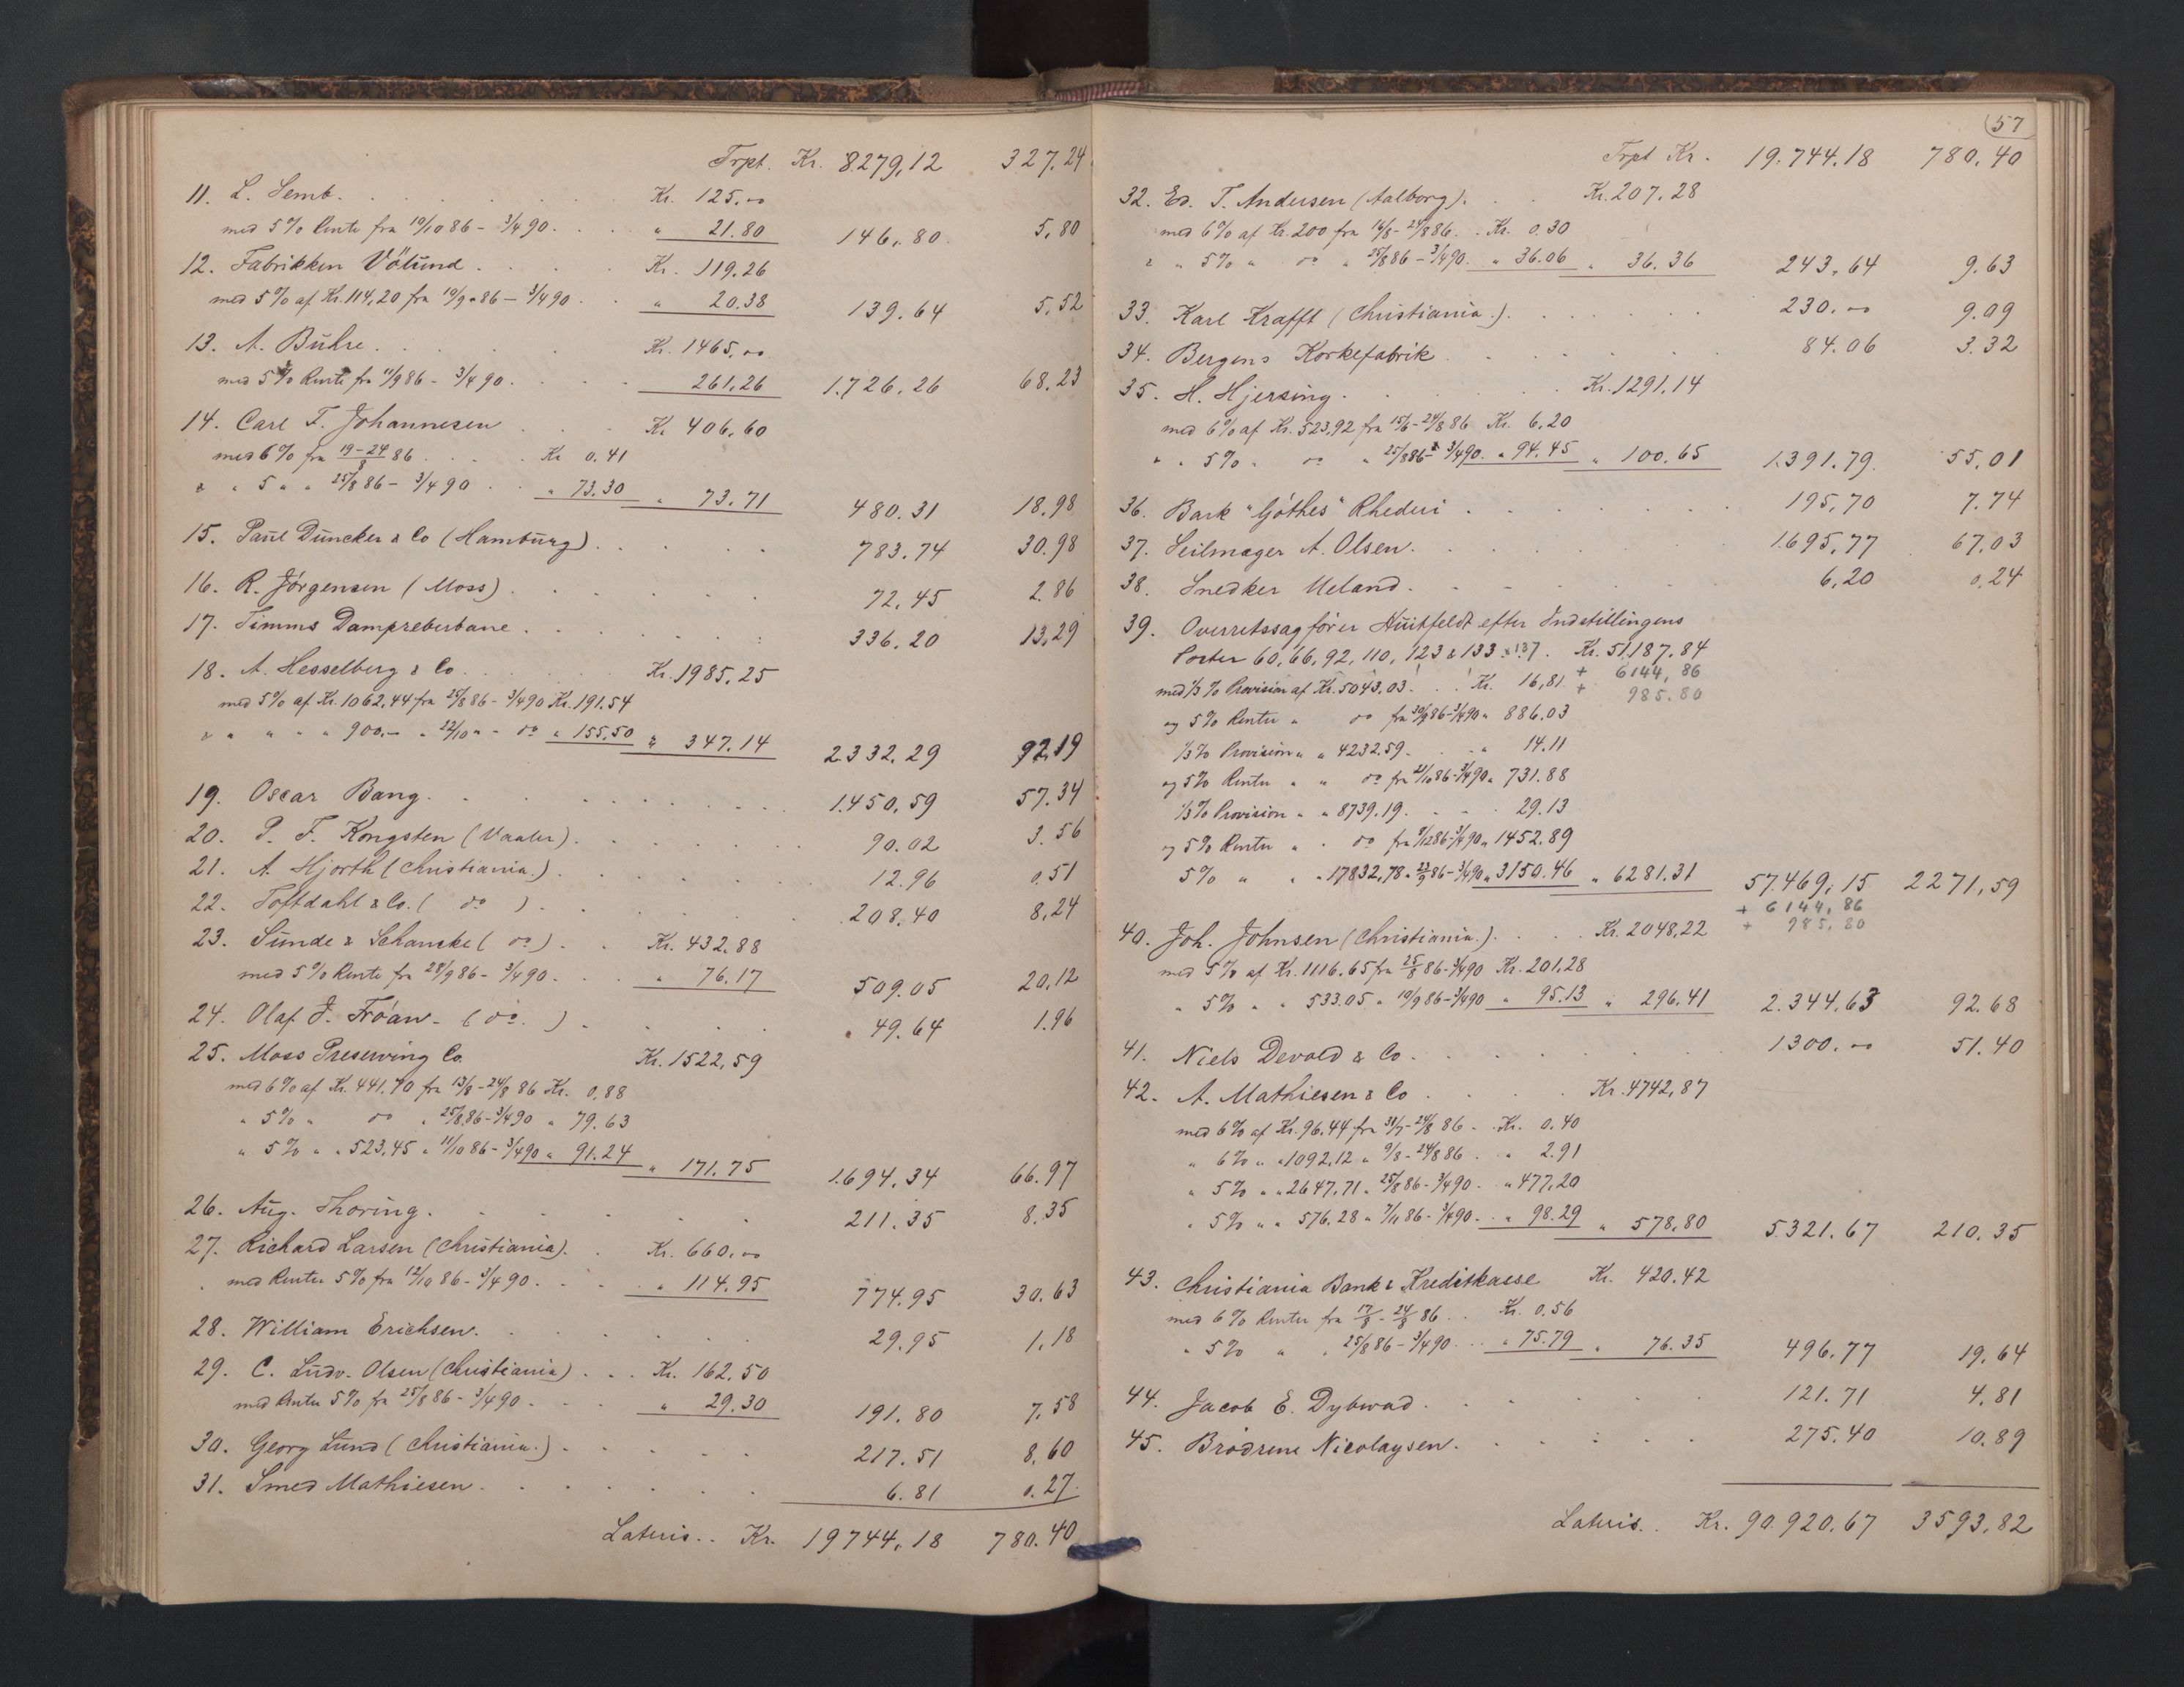 Trpt. Kr. 8279,12 327,24
11. L. Semb. Kr. 125.00
med 5% Rente fra 10/10 86 - 3/4 90. " 21.80 146,80 5,80
12. Fabrikken Völund. Kr. 119.26
med 5% af Kr. 114,20 fra 10/9 86 - 3/4 90 " 20.38 139.64 5,52
13. A. Bühre. Kr. 1465,00
med 5% Rente fra 11/9 86 - 3/4 90. 261,26 1.726,26 68.23
14. Carl F. Johannesen Kr 406,60
med 6% fra 19-24/8 86 Kr 0.41
& " 5 " " 25/8 86 - 3/4 90 " 73.30 " 73.71 480.31 18.98
15. Paul Duncker & Co (Hamburg). 783.74 30.98
16. R. Jörgensen (Moss). 72,45 2.86
17. Timms Dampreberbane. 336.20 13,29
18. A. Hesselberg & Co. Kr. 1985,25
med 5% af Kr. 1062,44 fra 25/8 86 - 3/4 90 Kr. 191.54
& " " " " 900.- " 22/10 " - do " 155,50 " 347.14 2.332,29 92.19
19. Oscar Bang. 1.450,59 57.34
20. P. F. Kongsten (Vaaler). 90.02 3.56
21. A. Hjorth (Christiania.). 12.96 0.51
22. Toftdahl & Co. ( do ). 208.40 8,24
23. Sunde & Schanske ( do ). Kr. 432.88
med 5% Rente fra 28/9 86 - 3/4 90. " 76.17 509.05 20,12
24. Olaf J. Tröan - ( do. ) 49.64 1.96
25. Moss Preserving Co. Kr. 1522,59
med 6% af Kr. 441.70 fra 13/8 - 24/8 86 Kr. 0,88
" 5% " do " 25/8 86 - 3/4 90 " 79.63
" 5% " " 523,45 " 11/10 86 - 3/4 90 " 91.24 " 171.75 1.694,34 66.97
26. Aug. Thoring. 211.35 8.35
27. Richard Larsen (Christiania). Kr. 660.00
med Renter 5% fra 12/10 86 - 3/4 90. " 114.95 774.95 30.63
28. William Erichsen. 29.95 1,18
29. C. Ludv. Olsen (Christiania) Kr. 162.50
med Renter 5% fra 25/8 86 - 3/4 90. " 29.30 191.80 7,58
30. Georg Lund (Christiania.). 217.51 8,60
31. Smed Mathiesen. 6.81 0.27.
Lateris.. Kr. 19744,18 780.40
57
Trpt Kr. 19.744.18 780,40
32. Ed. T. Andersen (Aalborg). Kr. 207.28
med 6% af Kr. 200 fra 16/8 - 24/8 86. Kr. 0.30
& " 5% " do " 25/8 86 - 3/4 90. " 36.06 " 36.36 243,64 9.63
33. Karl Krafft (Christiania.). 230.00 9.09
34. Bergens Korkefabrik. 84.06 3.32
35. H. Hjersing. Kr. 1291,14
med 6% af Kr. 523,92 fra 15/6 - 24/8 86 Kr. 6,20
" " 5% " do " 25/8 86 - 3/4 90. " 94.45 " 100.65 1.391.79. 55,01
36. Bark "Göthes" Rhederi 195,70 7.74
37. Seilmager A. Olsen. 1.695,77 67.03
38. Snedker Ueland. 6,20 0,24
39. Overretssagförer Huitfeldt efter Indstillingens
Poster 60, 66, 92, 110, 123 & 133 & 137. Kr. 51,187.84
+ 6144,86
med 1/3% Provision af Kr. 5043.03. Kr. 16,81 + 985.80
og 5% Renter " do fra 30/9 86 - 3/4 90 " 886.03
1/3% Provision " " 4232.59. " 14.11
og 5% Renter " " do fra 21/10 86 - 3/4 90 " 731.88
1/3% Provision " " 8739.19. 29.13
og 5% Renter " " do fra 8/12 86 - 3/4 90 " 1452.89
5% " " " 17832,78 " 23/9 86 - 3/4 90 " 3150.46 " 6281.31 57.469,15 2271,59
+ 6144,86
+ 985,80
40. Joh. Johnsen (Christiania.). Kr. 2048,22
med 5% af Kr. 1116.65 fra 25/8 86 - 3/4 90 Kr. 201,28
" 5% " " 533.05 " 19/9 86 - 3/4 90 " 95.13 " 296.41 2.344,63 92.68
41. Niels Devold & Co. 1300.00 51.40
42. A. Mathiesen & Co Kr. 4742,87
med 6% af Kr. 96.44 fra 31/7 - 24/8 86 - Kr. 0.40
" 6% " " 1092.12 " 9/8 - 24/8 86. " 2.91
" 5% " " 2647,71 " 25/8 86 - 3/4 90. " 477,20
" 5% " " 576.28 " 7/11 86 - 3/4 90. " 98.29 " 578,80 5.321.67 210.35
43. Christiania Bank & Kreditkasse Kr. 420.42
med 6% Renter fra 17/8 - 24/8 86. Kr. 0.56
" 5% " " 25/8 86 - 3/4 90. " 75.79 " 76.35 496.77 19.64
44. Jacob E. Dybwad. 121.71 4.81
45. Brödrene Nicolaysen. 275.40 10.89
Lateris.. Kr. 90.920.67 3593,82